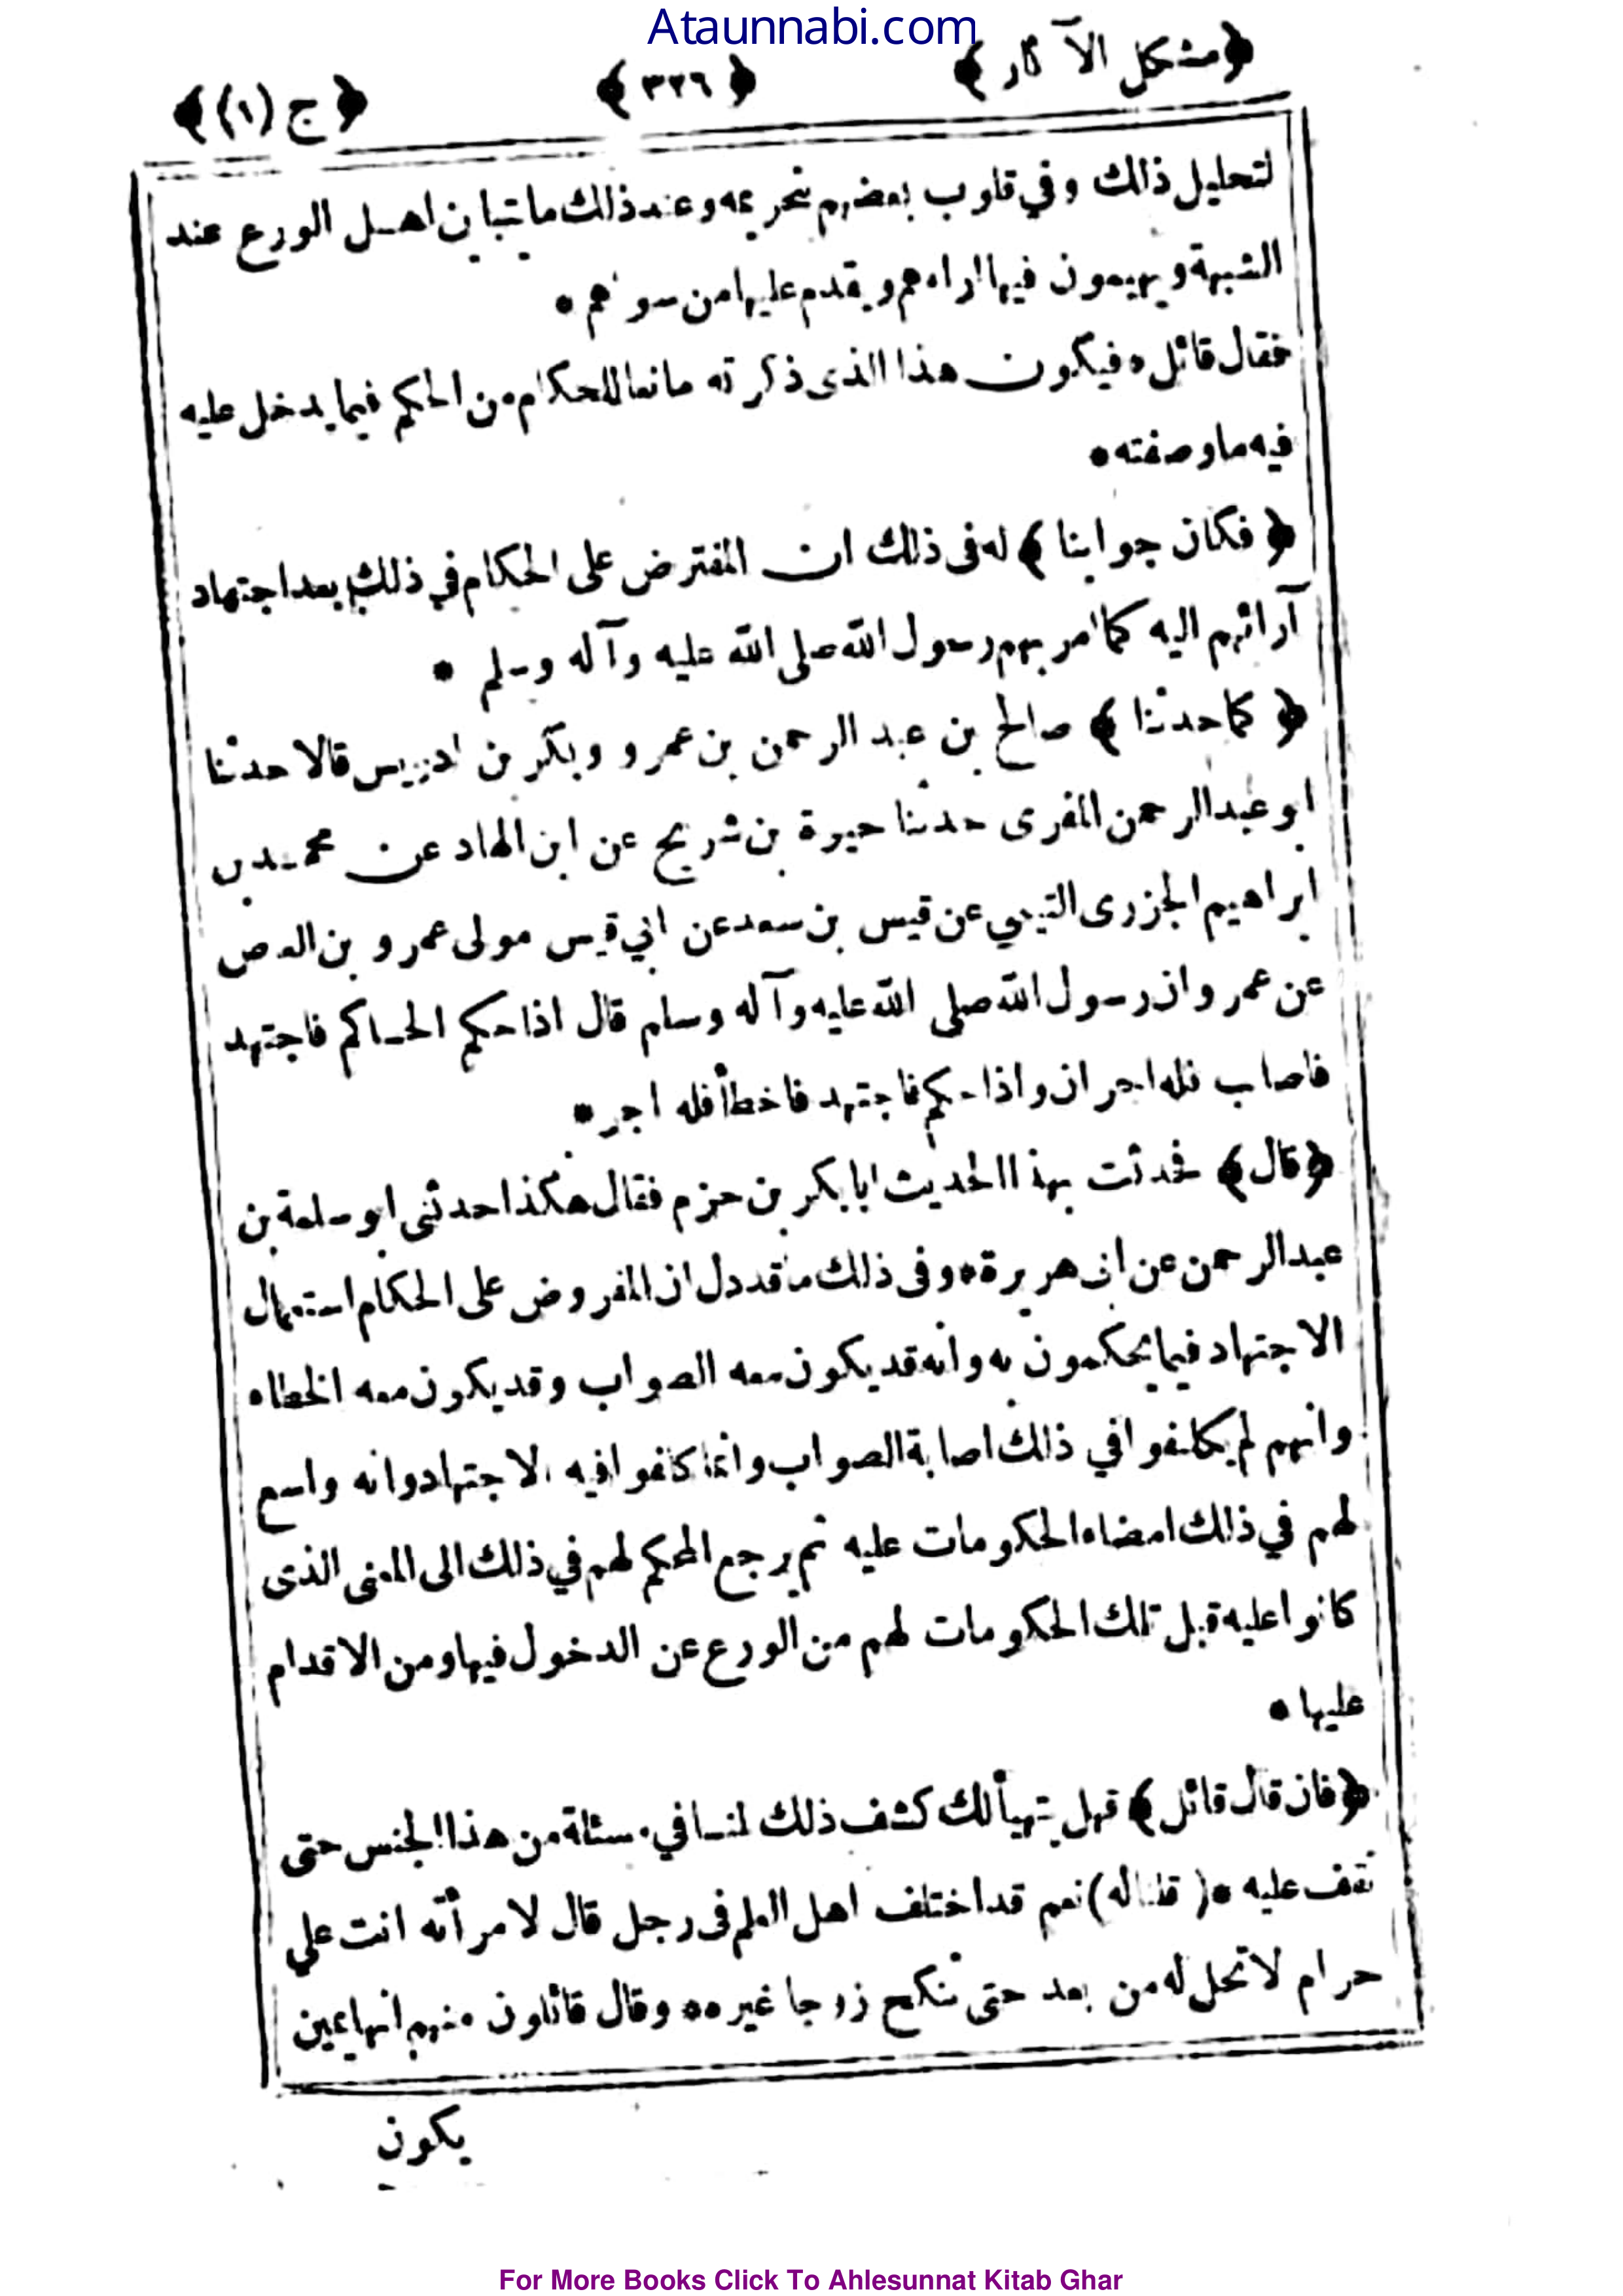 Ataunnabi.com
﴿ مشكل الآثار ﴾ ﴿ ٣٢٦ ﴾ ﴿ ج (١) ﴾
لتحليل ذلك وفي قلوب بعضهم تحريمه وعند ذلك ما يتباين اهل الورع عند
الشبهة ويهيمون فيها اراءهم ويقدم عليها من سواهم *
فقال قائل * فيكون هذا الذى ذكرته مانعا للحكام من الحكم فيما يدخل عليه
فيه ما وصفته *
﴿ فكان جوابنا ﴾ له فى ذلك ان المفترض على الحكام في ذلك بعد اجتهاد
آرائهم اليه كما امر بهم رسول الله صلى الله عليه وآله وسلم *
﴿ كما حدثنا ﴾ صالح بن عبد الرحمن بن عمرو وبكر بن ادريس قالا حدثنا
ابو عبد الرحمن المقرى حدثنا حيوة بن شريح عن ابن الهاد عن محمد بن
ابراهيم الجزرى التيمي عن قيس بن سعد عن ابي قيس مولى عمرو بن العاص
عن عمرو ان رسول الله صلى الله عليه وآله وسلم قال اذا حكم الحاكم فاجتهد
فاصاب فله اجران واذا حكم فاجتهد فاخطأ فله اجر *
﴿ قال ﴾ فحدثت بهذا الحديث ابا بكر بن حزم فقال هكذا حدثنى ابو سلمة بن
عبد الرحمن عن ابى هريرة * وفى ذلك ما قد دل ان المفروض على الحكام استعمال
الاجتهاد فيما يحكمون به وانه قد يكون معه الصواب وقد يكون معه الخطاء
وانهم لم يكلفوا في ذلك اصابة الصواب وانما كلفوا فيه الاجتهاد وانه واسع
لهم في ذلك امضاء الحكومات عليه ثم يرجع الحكم لهم في ذلك الى المعنى الذى
كانوا عليه قبل تلك الحكومات لهم من الورع عن الدخول فيها ومن الاقدام
عليها *
﴿ فان قال قائل ﴾ فهل يتهيأ لك كشف ذلك لنا في مسئلة من هذا الجنس حتى
نقف عليه * ( قلنا له ) نعم قد اختلف اهل العلم فى رجل قال لامرأته انت علي
حرام لا تحل له من بعد حتى تنكح زوجا غيره ** وقال قائلون منهم انها يمين
يكون
For More Books Click To Ahlesunnat Kitab Ghar